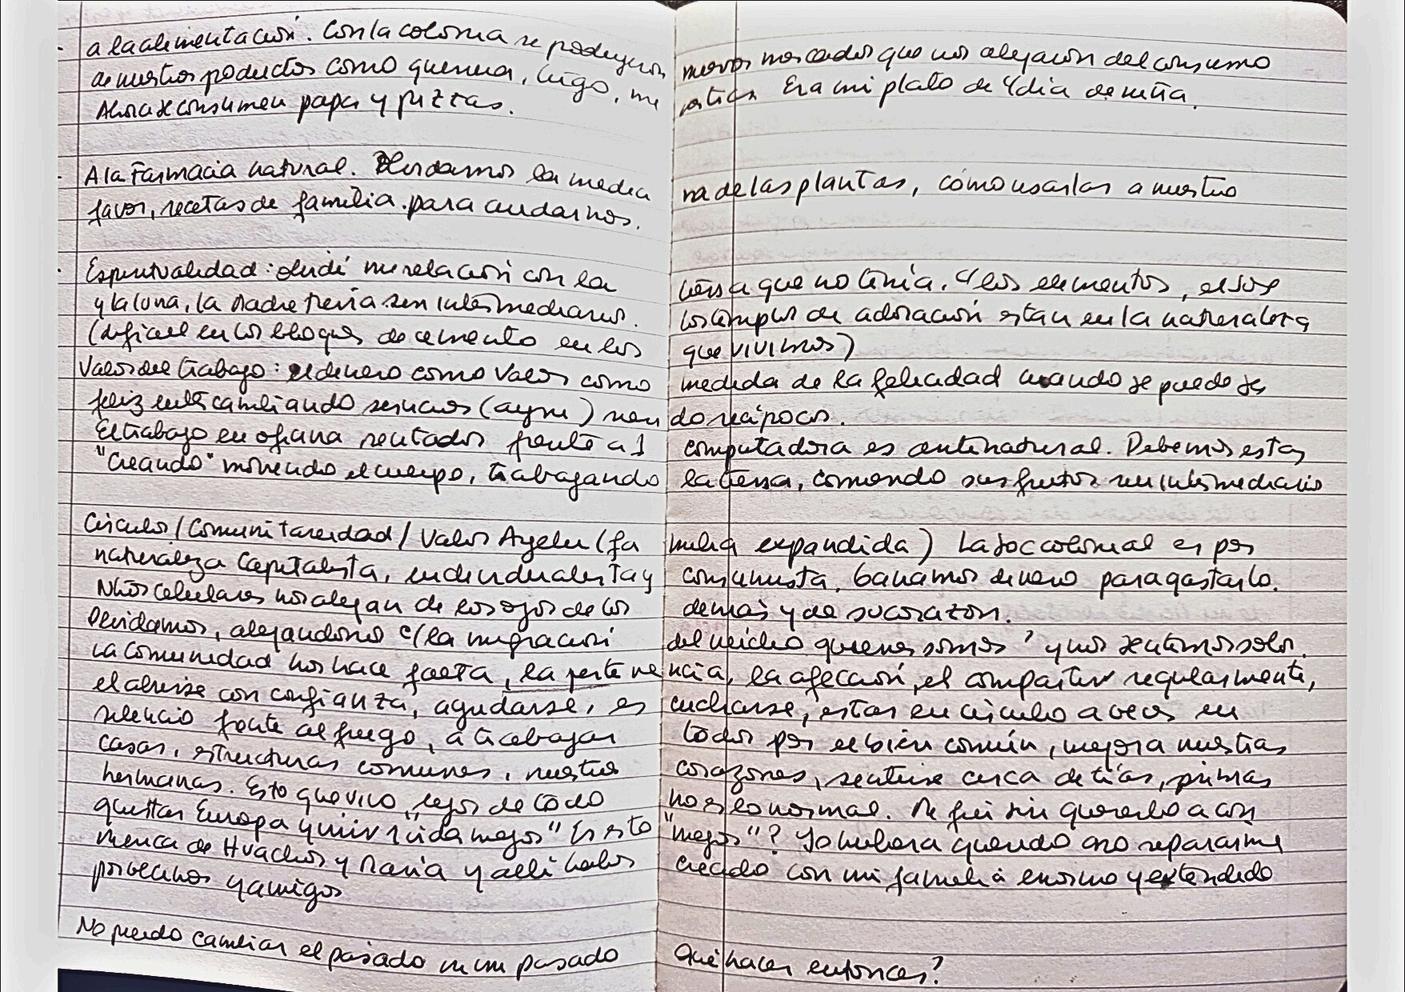 a la alimentación. Con la colonia se produjeron nuevos mercados que nos alejaron del consumo
de nuestros productos como quenua, trigo, Era mi plato de c/dia de niña.
Ahora se consumen papa y pizzas.
A la Farmacia natural. Olvidamos la medicina de las plantas, cómo usarlas a nuestro
favor, recetas de familia para cuidarnos.
Espiritualidad: olvidé mi relación con la tierra que no tenía. c/los elementos, el sol
y la luna, la Madre Tierra sin intermediarios. los templos de adoración estan en la naturaleza
(difícil en los bloques de cemento en los que vivimos)
Valor del trabajo: el dinero como valor como medida de la felicidad cuando se puede ser
feliz intercambiando servicios (ayni) siendo recíprocos.
El trabajo en oficina sentados frente a 1 computadora es antinatural. Debemos estar
"Creando" moviendo el cuerpo, trabajando la tierra, comiendo sus frutos sin intermediario
Círculo / Comunitareidad / Valor Ayllu (familia expandida) La soc colonial es por
naturaleza Capitalista, individualista y consumista. Ganamos dinero para gastarlo.
Ntros celulares nos alejan de los ojos de los demás y de su corazon.
Olvidamos, alejandonos c/la migración del núcleo quienes somos y nos sentimos solos.
La comunidad nos hace falta, la pertenencia, la afección, el compartir regularmente,
el abrirse con confianza, ayudarse, escucharse, estar en círculo a veces en
silencio frente al fuego, a trabajar todos por el bien común, mejora nuestras
casas, estructuras comunes, nuestros corazones, sentirse cerca de tías, primas
hermanas. Esto que vivo, lejos de todo no es lo normal. Me fui sin quererlo a con
quistar Europa y vivir "vida mejor" Es esto "mejor"? Yo hubiera querido no separarme
nunca de Huachos y María y allí haber crecido con mi familia enorme y extendida
por vecinos y amigos
No puedo cambiar el pasado en un pasado Qué hacer entonces?